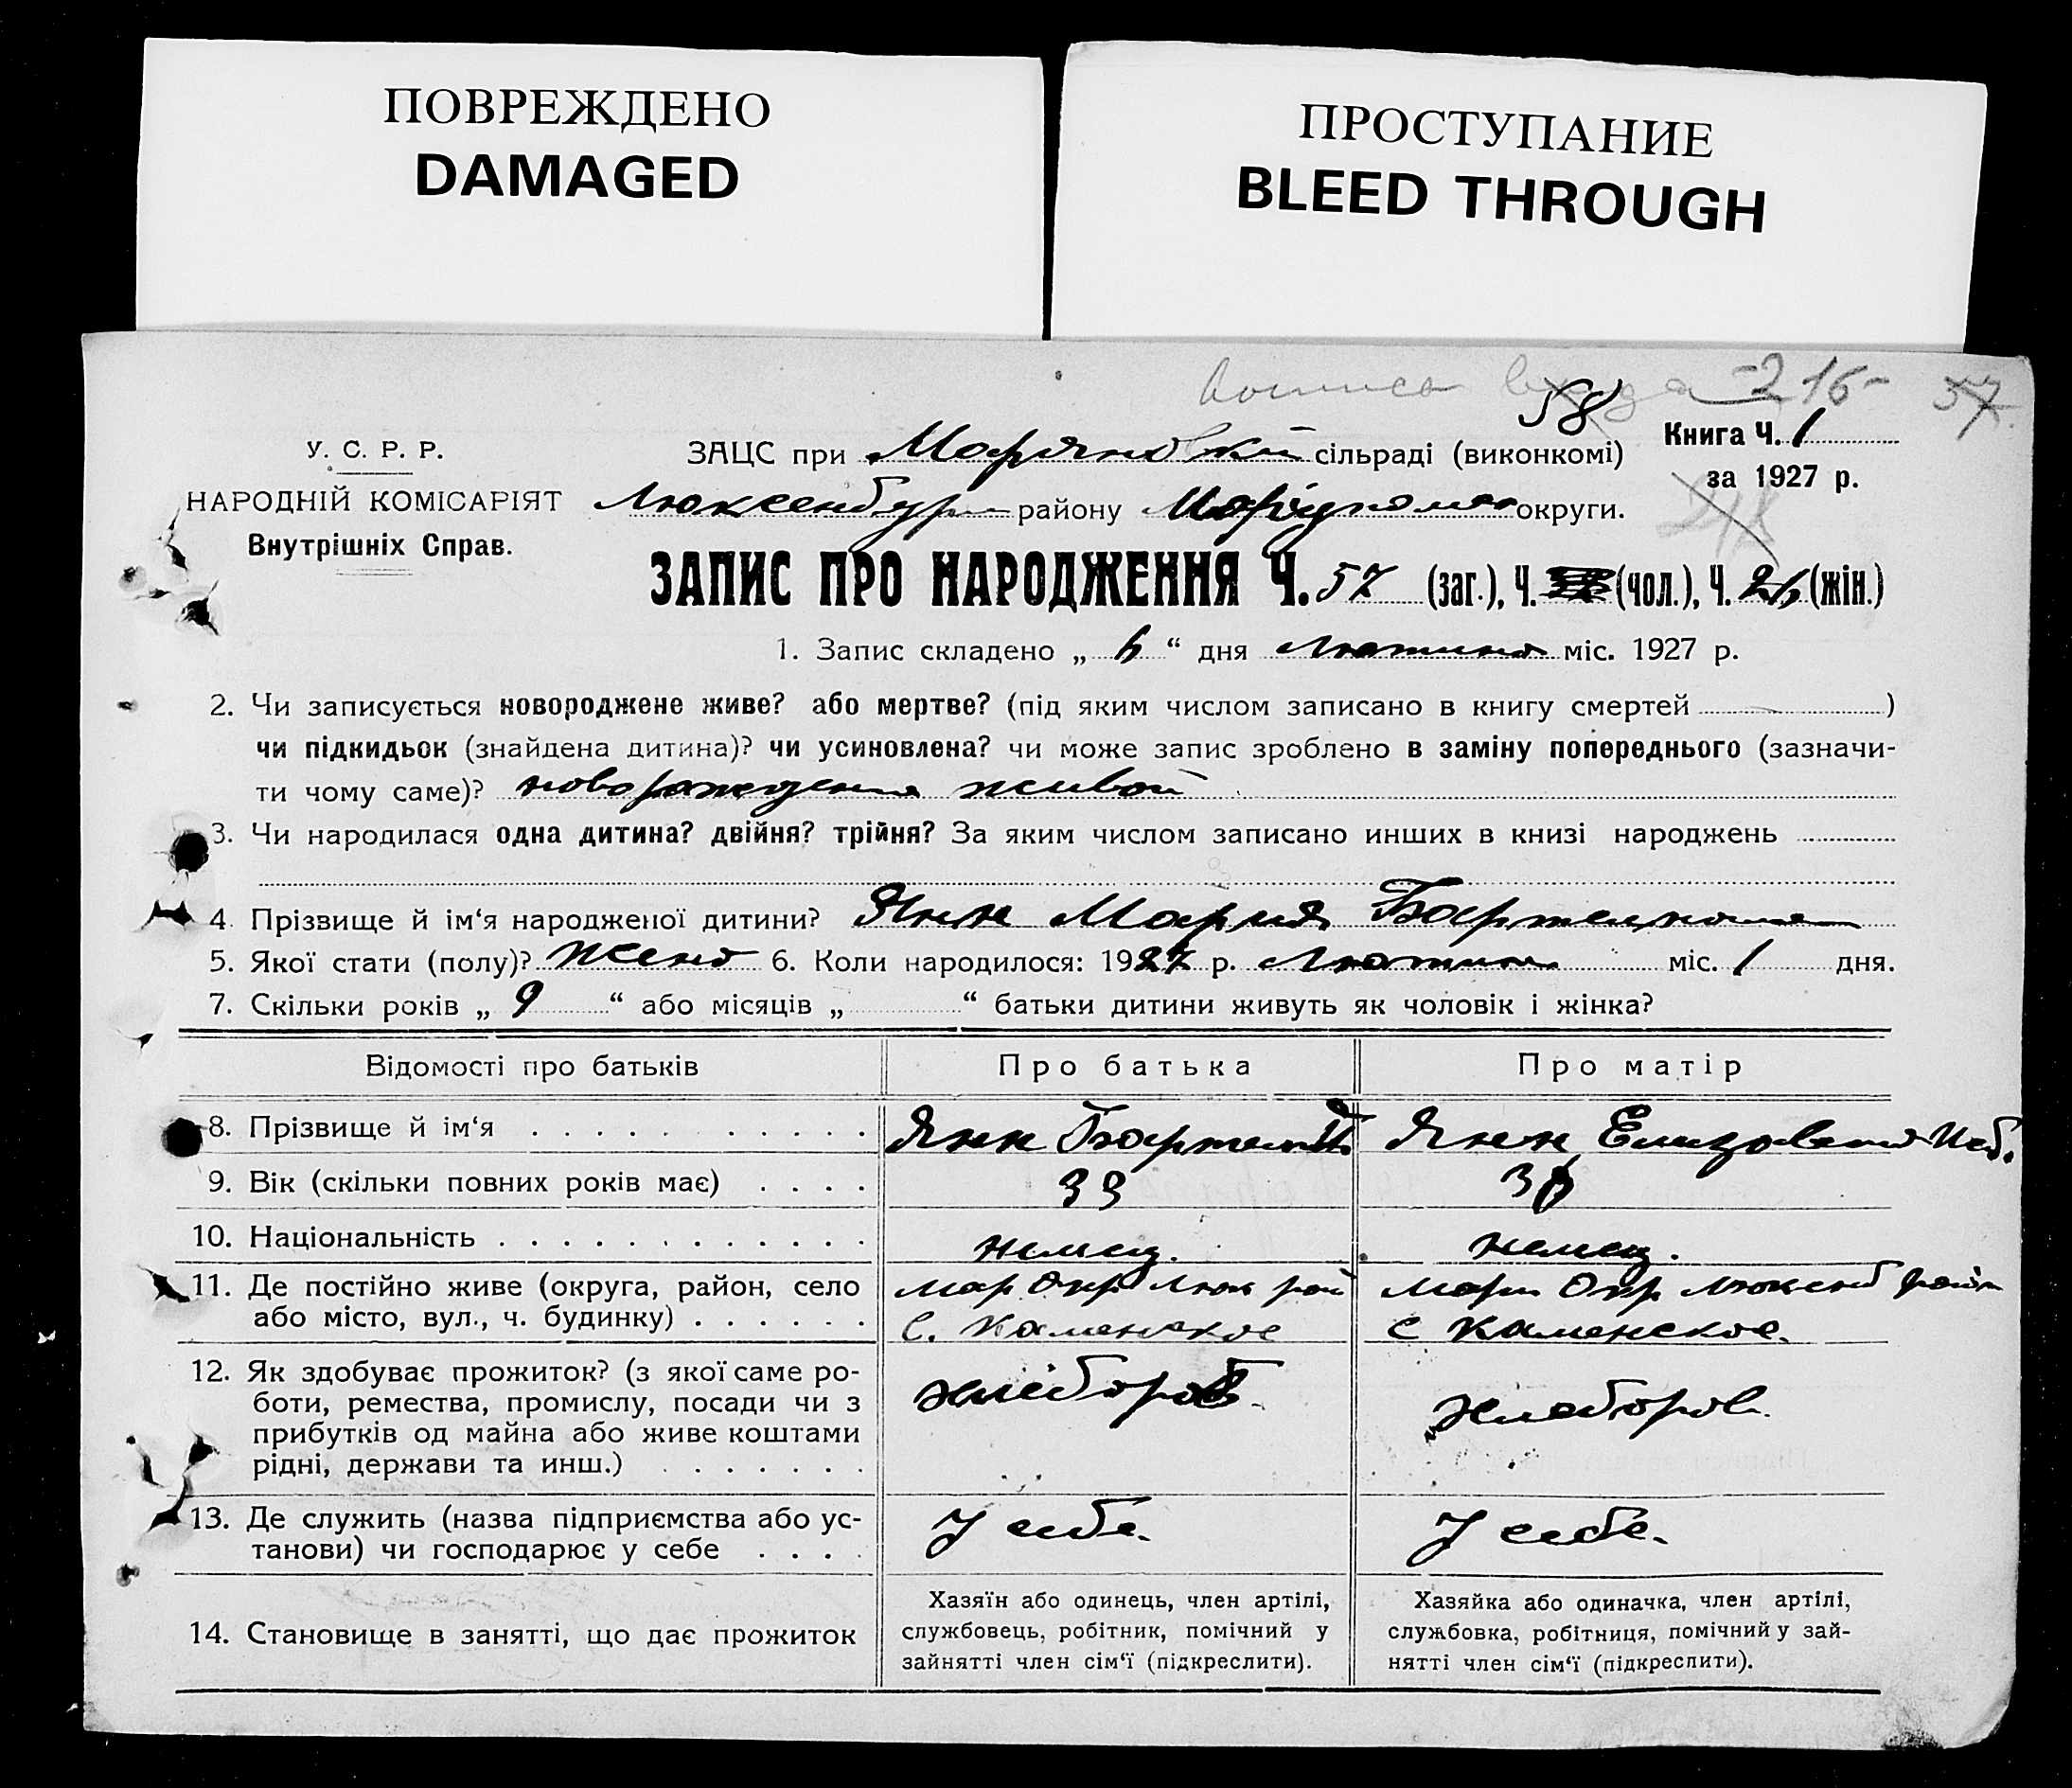 ПОВРЕЖДЕНО
DAMAGED
ПРОСТУПАНИЕ
BLEED THROUGH
-216- 57
58
У. С. Р. Р.
НАРОДНІЙ КОМІСАРІЯТ
Внутрішніх Справ.
ЗАЦС при сільраді (виконкомі)
Книга Ч. 1
за 1927 р.
району округи.
ЗАПИС ПРО НАРОДЖЕННЯ Ч. 57 (заг.), Ч. (чол.), Ч. 26 (жін.)
1. Запис складено „ 6 “ дня міс. 1927 р.
2. Чи записується новороджене живе? або мертве? (під яким числом записано в книгу смертей )
чи підкидьок (знайдена дитина)? чи усиновлена? чи може запис зроблено в заміну попереднього (зазначи-
ти чому саме)? живой
3. Чи народилася одна дитина? двійня? трійня? За яким числом записано инших в книзі народжень
4. Прізвище й ім‘я народженої дитини? Янн Мария
5. Якої стати (полу)? Жено 6. Коли народилося: 1927 р. міс. 1 дня.
7. Скільки років „ 9 “ або місяців „ “ батьки дитини живуть як чоловік і жінка?
Відомості про батьків
Про батька
Про матір
8. Прізвище й ім‘я
Янн
Янн Елизовета
9. Вік (скільки повних років має)
33
10. Національність
немец.
немец.
11. Де постійно живе (округа, район, село
або місто, вул., ч. будинку)
Мар Окр Люк рай
с. Каменское
Мари Окр Люксенб район
с Каменское.
12. Як здобуває прожиток? (з якої саме ро-
боти, ремества, промислу, посади чи з
прибутків од майна або живе коштами
рідні, держави та инш.)
хлебороб.
13. Де служить (назва підприємства або ус-
танови) чи господарює у себе
У себе.
У себе.
14. Становище в занятті, що дає прожиток
Хазяїн або одинець, член артілі,
службовець, робітник, помічний у
зайнятті член сім‘ї (підкреслити).
Хазяйка або одиначка, член артілі,
службовка, робітниця, помічний у зай-
нятті член сім‘ї (підкреслити).